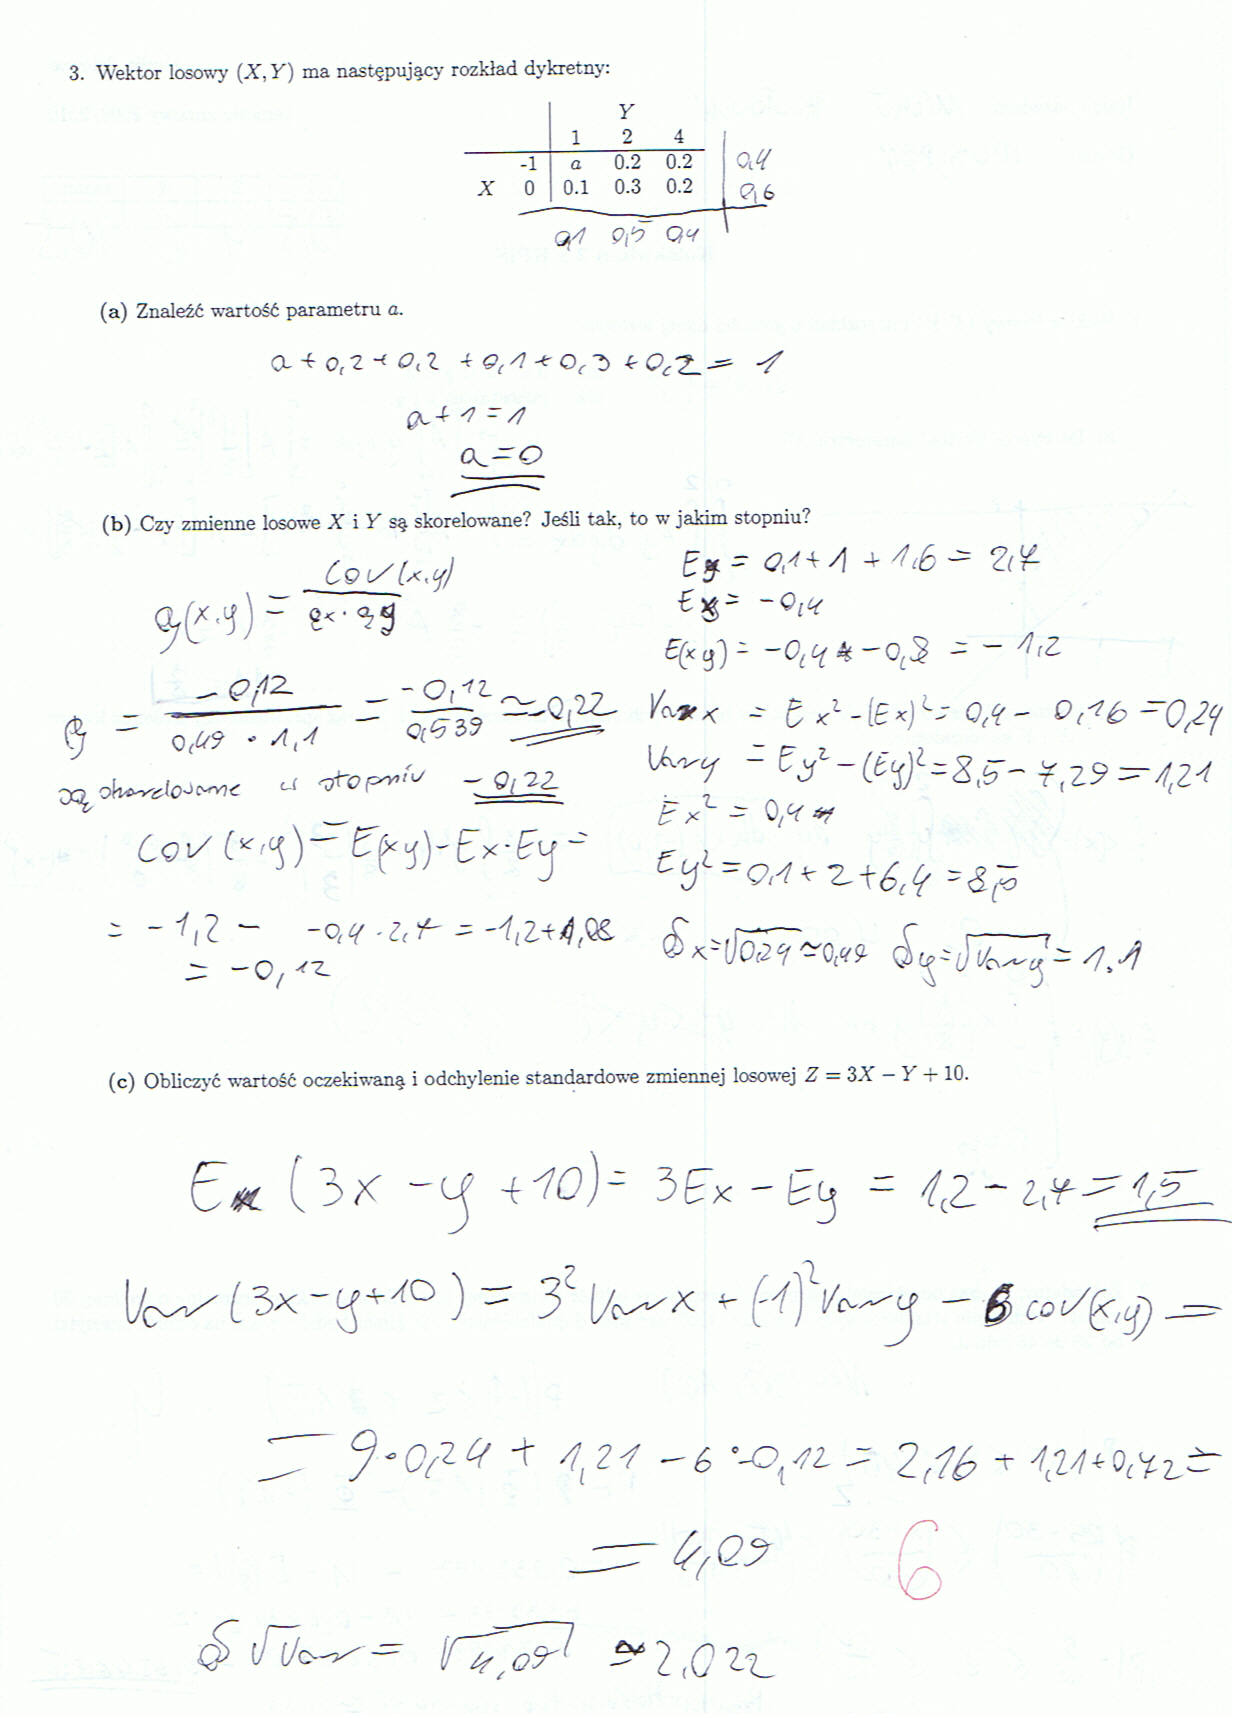 3. Wektor losowy (X, Y) ma następujący rozkład dykretny:
Y
1 2 4
-1 a 0.2 0.2 0,4
X 0 0.1 0.3 0.2 0,6
0,1 0,5 0,4
(a) Znaleźć wartość parametru a.
a + 0,2 + 0,2 + 0,1 + 0,3 + 0,2 = 1
a + 1 = 1
a = 0
(b) Czy zmienne losowe X i Y są skorelowane? Jeśli tak, to w jakim stopniu?
ρ(x,y) = cov(x,y) / ρx·ρy
ρ = -0,12 / 0,49 · 1,1 = -0,12 / 0,539 ≃ -0,22
są skorelowane w stopniu -0,22
cov(x,y) = E(xy) - Ex·Ey =
= -1,2 - -0,4 · 2,7 = -1,2 + 1,08
= -0,12
Ey = 0,1 + 1 + 1,6 = 2,7
Ex = -0,4
E(xy) = -0,4 -0,8 = -1,2
Var x = Ex² - (Ex)² = 0,4 - 0,16 = 0,24
Var y = Ey² - (Ey)² = 8,5 - 7,29 = 1,21
Ex² = 0,4
Ey² = 0,1 + 2 + 6,4 = 8,5
δx = √0,24 ≃ 0,49 δy = √Var y = 1.1
(c) Obliczyć wartość oczekiwaną i odchylenie standardowe zmiennej losowej Z = 3X − Y + 10.
E (3x - y + 10) = 3Ex - Ey = 1,2 - 2,7 = 1,5
Var (3x - y + 10) = 3² Var x + (-1)² Var y - 6 cov(x,y) =
= 9 · 0,24 + 1,21 - 6 · -0,12 = 2,16 + 1,21 + 0,72 =
= 4,09
6
δ √Var = √4,09 ≃ 2,022